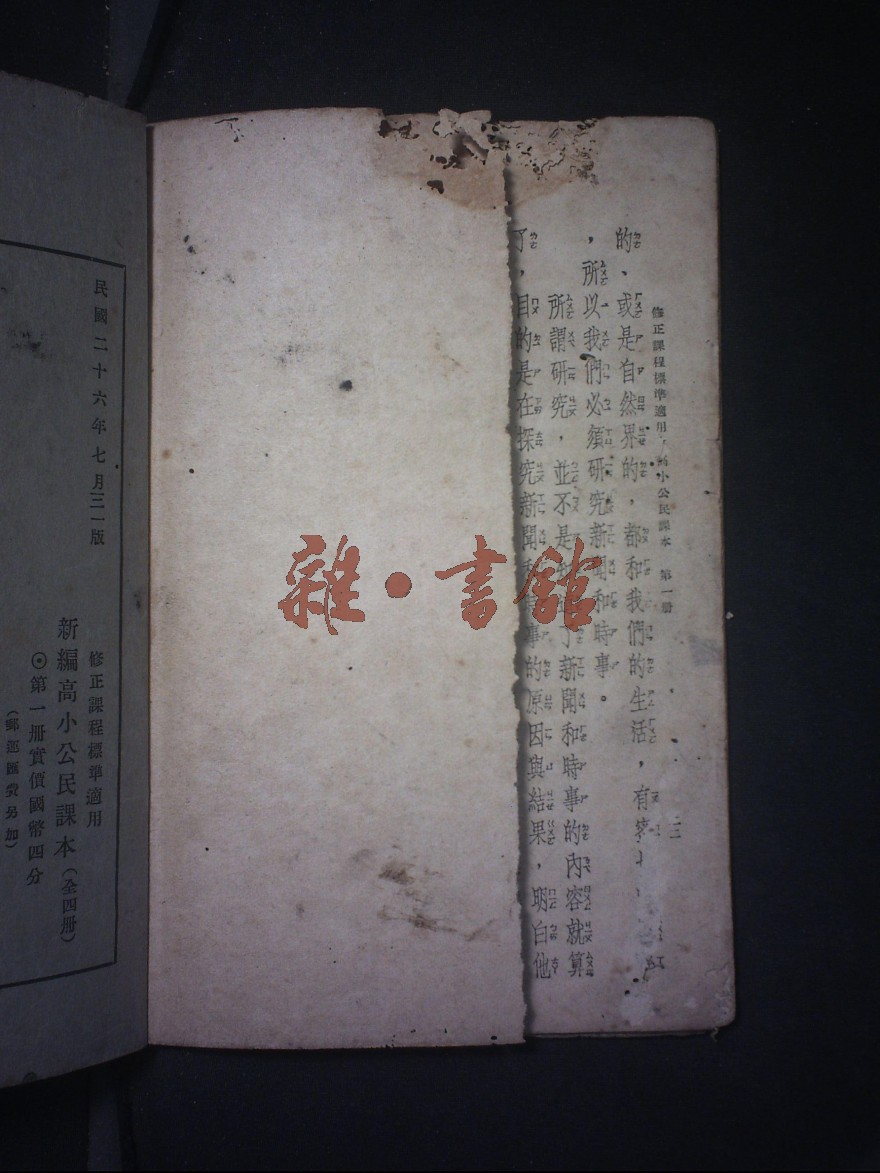 修正課程標準適用 小公民課本 第一册
二二
的、或是自然界的,都和我們的生活,有
,所以我們必須研究新聞和時事。
所謂研究,並不是了新聞和時事的內容就算
了,目的是在探究新聞和時事的原因與結果,明白他
雜·書館
民國二十六年七月三一版
修正課程標準適用
新編高小公民課本(全四册)
⊙第一册實價國幣四分
(郵運匯費另加)